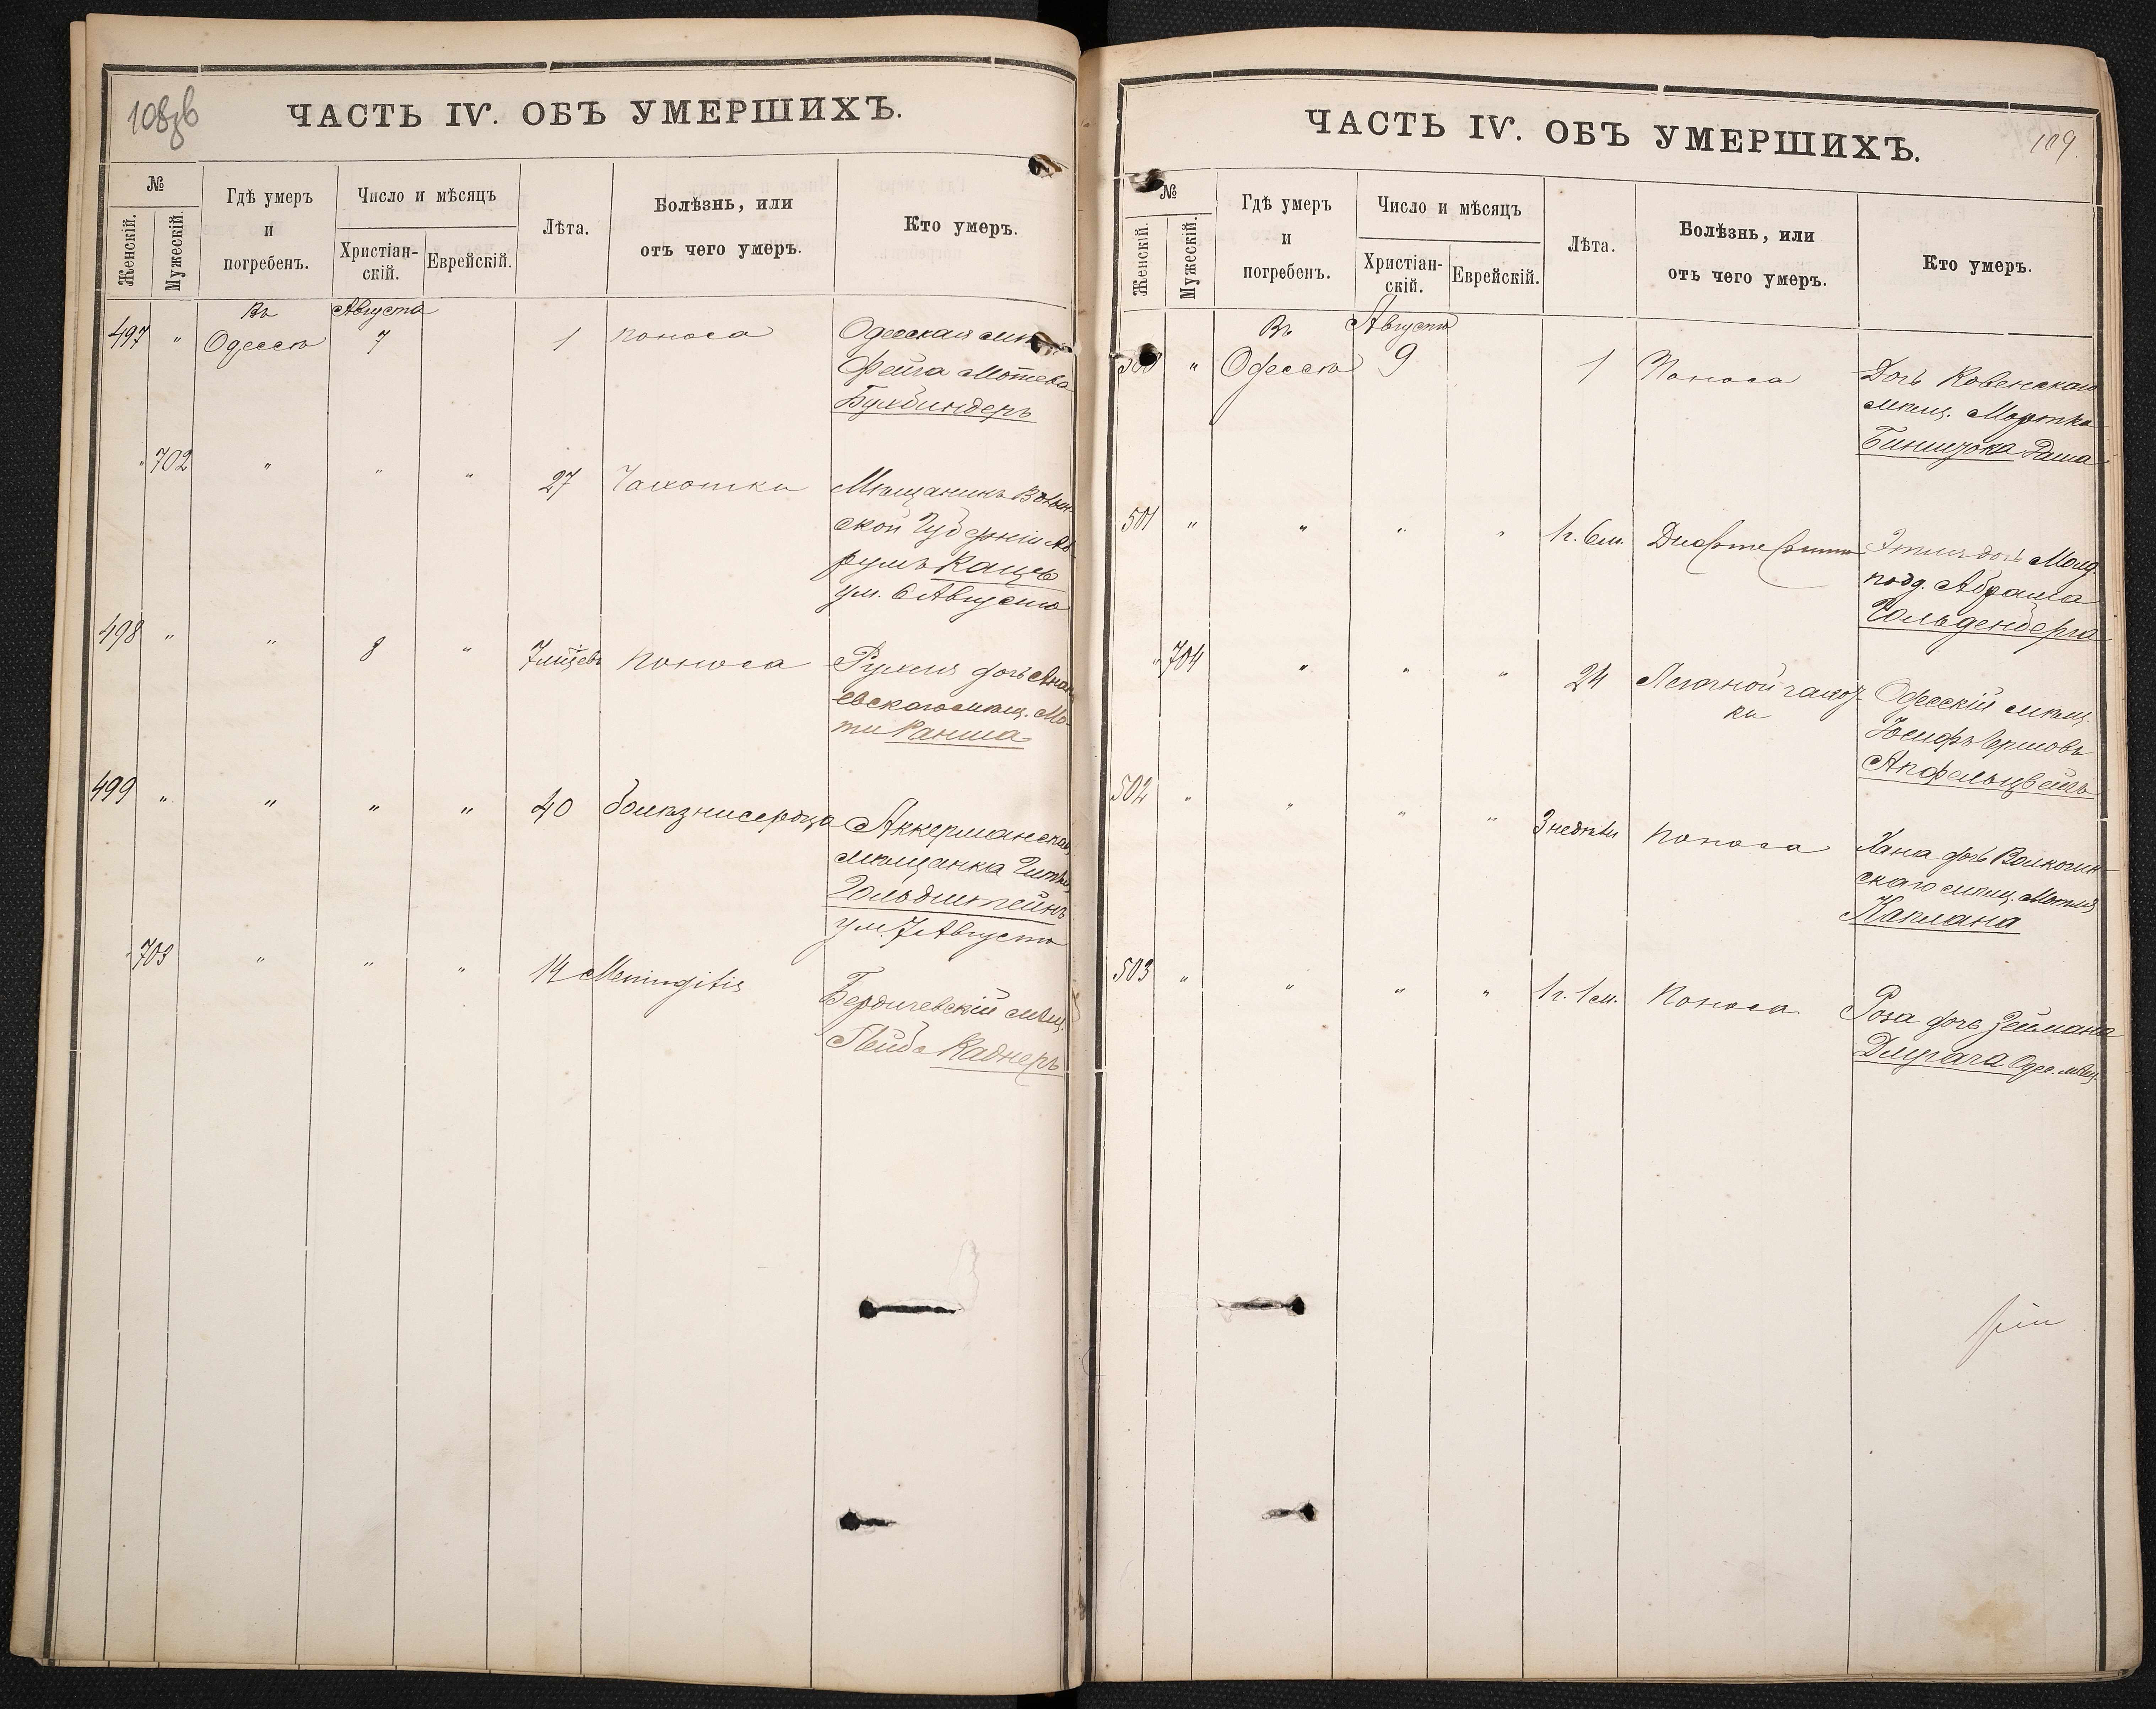 108 зв
ЧАСТЬ IV. ОБЪ УМЕРШИХЪ.
№
Женскій.
Мужескій.
Гдѣ умеръ
и
погребенъ.
Число и мѣсяцъ
Христіан-
скій.
Еврейскій.
Лѣта.
Болѣзнь, или
отъ чего умеръ.
Кто умеръ.
Въ Августа
497 " Одессѣ 7 1 поноса Одесская
Фейга Мотева
Бухбиндеръ
" 702 " " " 27 Чахотки Мѣщанинъ Волын-
ской Губерніи Аб-
румъ Кацъ
ум. 6 Августа
498 " " 8 " 7 мѣсцевъ поноса Рухля дочь Анань-
евскаго мѣщ. Мо-
ти
499 " " " " 40 болѣзни сердца Аккерманская
мѣщанка Гитля
Гольдштейнъ
ум. 7 Августа
" 703 " " " 14 Meningitis
Бердичевскій мѣщ.
Лейбъ Каднеръ
ЧАСТЬ IV. ОБЪ УМЕРШИХЪ.
109.
№
Женскій.
Мужескій.
Гдѣ умеръ
и
погребенъ.
Число и мѣсяцъ
Христіан-
скій.
Еврейскій.
Лѣта.
Болѣзнь, или
отъ чего умеръ.
Кто умеръ.
Въ Августа
500 " Одессѣ 9 1 Поноса Дочь Ковенскаго
мѣщ. Мортка
501 " " " " 1 г. 6 м. Дифтерита Этля дочь
подд. Абрама
Гольденберга
" 704 " " " 24 Легочной чахот-
ки
Одесскій мѣщ.
Іосифъ Гершовъ
Апфельцвейгъ
502 " " " " 3 недѣли поноса Хана дочь
скаго мѣщ. Мотля
Каплана
503 " " " " 1 г. 1 м. поноса Роза дочь Зеймана
Длугача Одес. мѣщ.